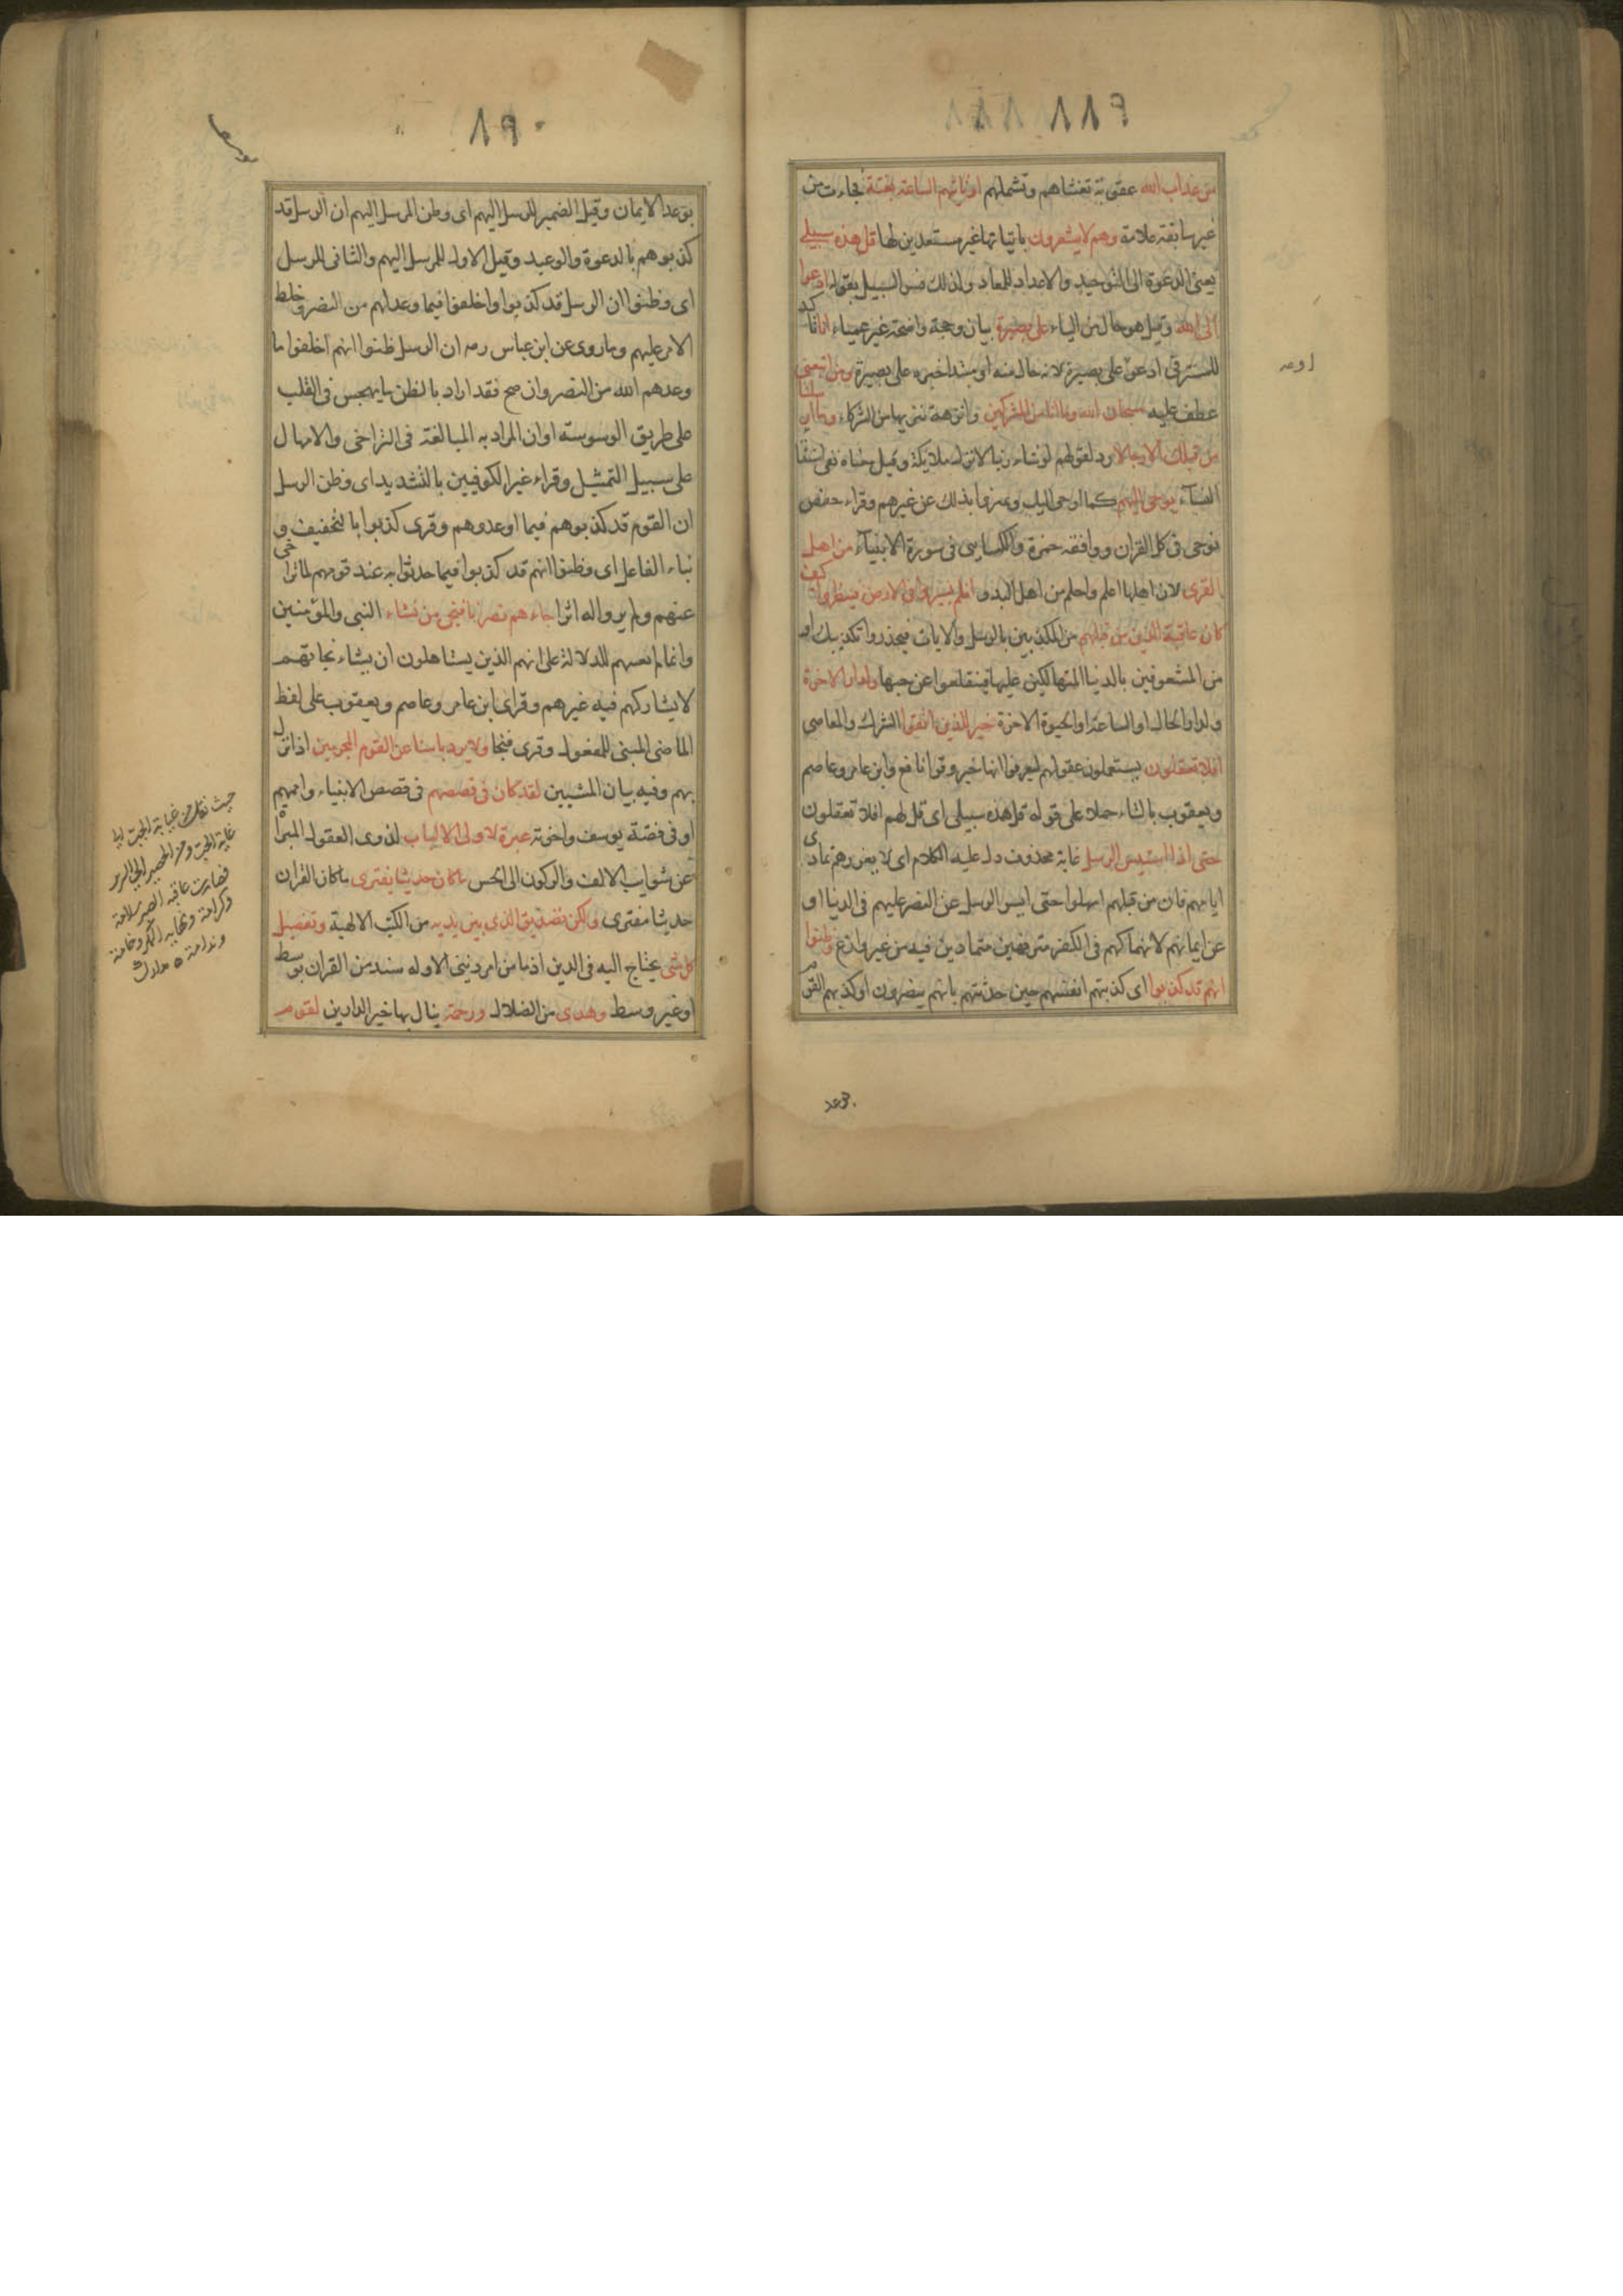 ١٨٩
من عذاب الله عقوبة تغشاهم وتشملهم اوتاتيهم الساعة بغتة فجاءت من
غير سابقة علامة وهم لا يشعرون باتيانها غير مستعدين لها قل هذه سبيلي
يعنى الدعوة الى التوحيد والاعداد للمعاد ولذلك فسر السبيل بقوله ادعوا
الى الله وقيل هو حال من الياء على بصيرة بيان وحجة واضحة غير عمياء انا تاكيد
للمستتر فى ادعو او على بصيرة لانه حال منه او مبتدا خبره على بصيرة ومن اتبعنى
عطف عليه سبحان الله وما انا من المشركين وانزهه تنزيها من الشركاء وما ارسلنا
من قبلك الا رجالا رد لقولهم لو شاء ربنا لانزل ملايكة وقيل معناه نفى استنباء
النساء يوحى اليهم كما اوحى اليك ويميزوا بذلك عن غيرهم وقراء حفص
نوحى فى كل القران ووافقه حمزة والكسايى فى سورة الانبياء من اهل
القرى لان اهلها اعلم واحلم من اهل البدو افلم يسيروا فى الارض فينظروا كيف
كان عاقبة الذين من قبلهم من المكذبين بالرسل والايات فيحذروا تكذيبك او
من المشعوفين بالدنيا المتهالكين عليها فينقلعوا عن حبها ولدار الاخرة
ولدار الحال او الساعة او الحيوة الاخرة خير للذين اتقوا الشرك والمعاصى
افلا تعقلون يستعملون عقولهم ليعرفوا انها خير وقرا نافع وابن عامر وعاصم
ويعقوب بالتاء حملا على قوله قل هذه سبيلى اى قل لهم افلا تعقلون
حتى اذا استيس الرسل غاية محذوف دل عليه الكلام اى لا يغررهم تمادى
ايامهم فان من قبلهم امهلوا حتى ايس الرسل عن النصر عليهم فى الدنيا او
عن ايمانهم لانهماكهم فى الكفر مترفهين متمادين فيه من غير وازع وظنوا
انهم قد كذبوا اى كذبتهم انفسهم حين حدثتهم بانهم ينصرون او كذبهم القوم
بوعد
١٩٠
بوعد الايمان وقيل الضمير للرسل اليهم اى وظن المرسل اليهم ان الرسل قد
كذبوهم بالدعوة والوعيد وقيل الاول للمرسل اليهم والثانى للرسل
اى وظنوا ان الرسل قد كذبوا واخلفوا فيما وعد لهم من النصر وخلط
الامر عليهم وما روى عن ابن عباس رصه ان الرسل ظنوا انهم اخلفوا ما
وعدهم الله من النصر وان صح فقد اراد بالظن ما يهجس فى القلب
على طريق الوسوسته اوان المراد به المبالغة فى التراخى والامهال
على سبيل التمثيل وقراء غير الكوفيين بالتشديد اى وظن الرسل
ان القوم قد كذبوهم فيما اوعدوهم وقرى كذبوا بالتخفيف و
بناء الفاعل اى وظنوا انهم قد كذبوا فيما حدثوا به عند قومهم لما تراخى
عنهم ولم يروا له اثرا جاءهم نصرنا فنجى من نشاء النبى والمؤمنين
وانما لم يعينهم للدلالة على انهم الذين يستاهلون ان يشاء نجاتهم
لا يشاركهم فيه غيرهم وقراى ابن عامر وعاصم ويعقوب على لفظ
الماضى المبنى للمفعول وقرى فنجا ولا يرد باسنا عن القوم المجرمين اذا نزل
بهم وفيه بيان المشيين لقد كان فى قصصهم فى قصص الانبياء واممهم
او فى قصة يوسف واخوته عبرة لاولى الالباب لذوى العقول المبراة
عن شوايب الالف والركون الى الحس ما كان حديثا يفترى ما كان القران
حديثا مفترى ولكن تصديق الذى بين يديه من الكتب الالهية وتفصيل
كل شى يحتاج اليه فى الدين اذ ما من امر دينى الا وله سند من القران بوسط
او غير وسط وهدى من الضلال ورحمة ينال بها خير الدارين لقوم
حيث نقل من غيابة الجب الى
غاية الحب ومن الحصير الى السرير
فصارت عاقبة الصبر سلامة
وكرامة ونهاية المكر وخامة
وندامة ٥ مدارك